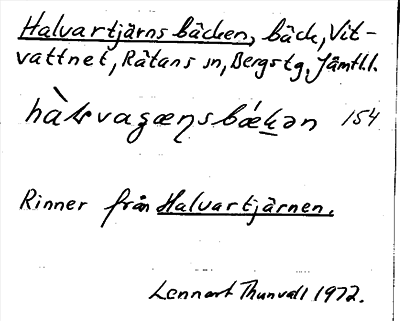 Halvartjärnsbäcken, bäck, Vit-
vattnet, Rätans sn, Bergstg, Jämtl.l.
154
Rinner från Halvartjärnen.
Lennart Thunvall 1972.